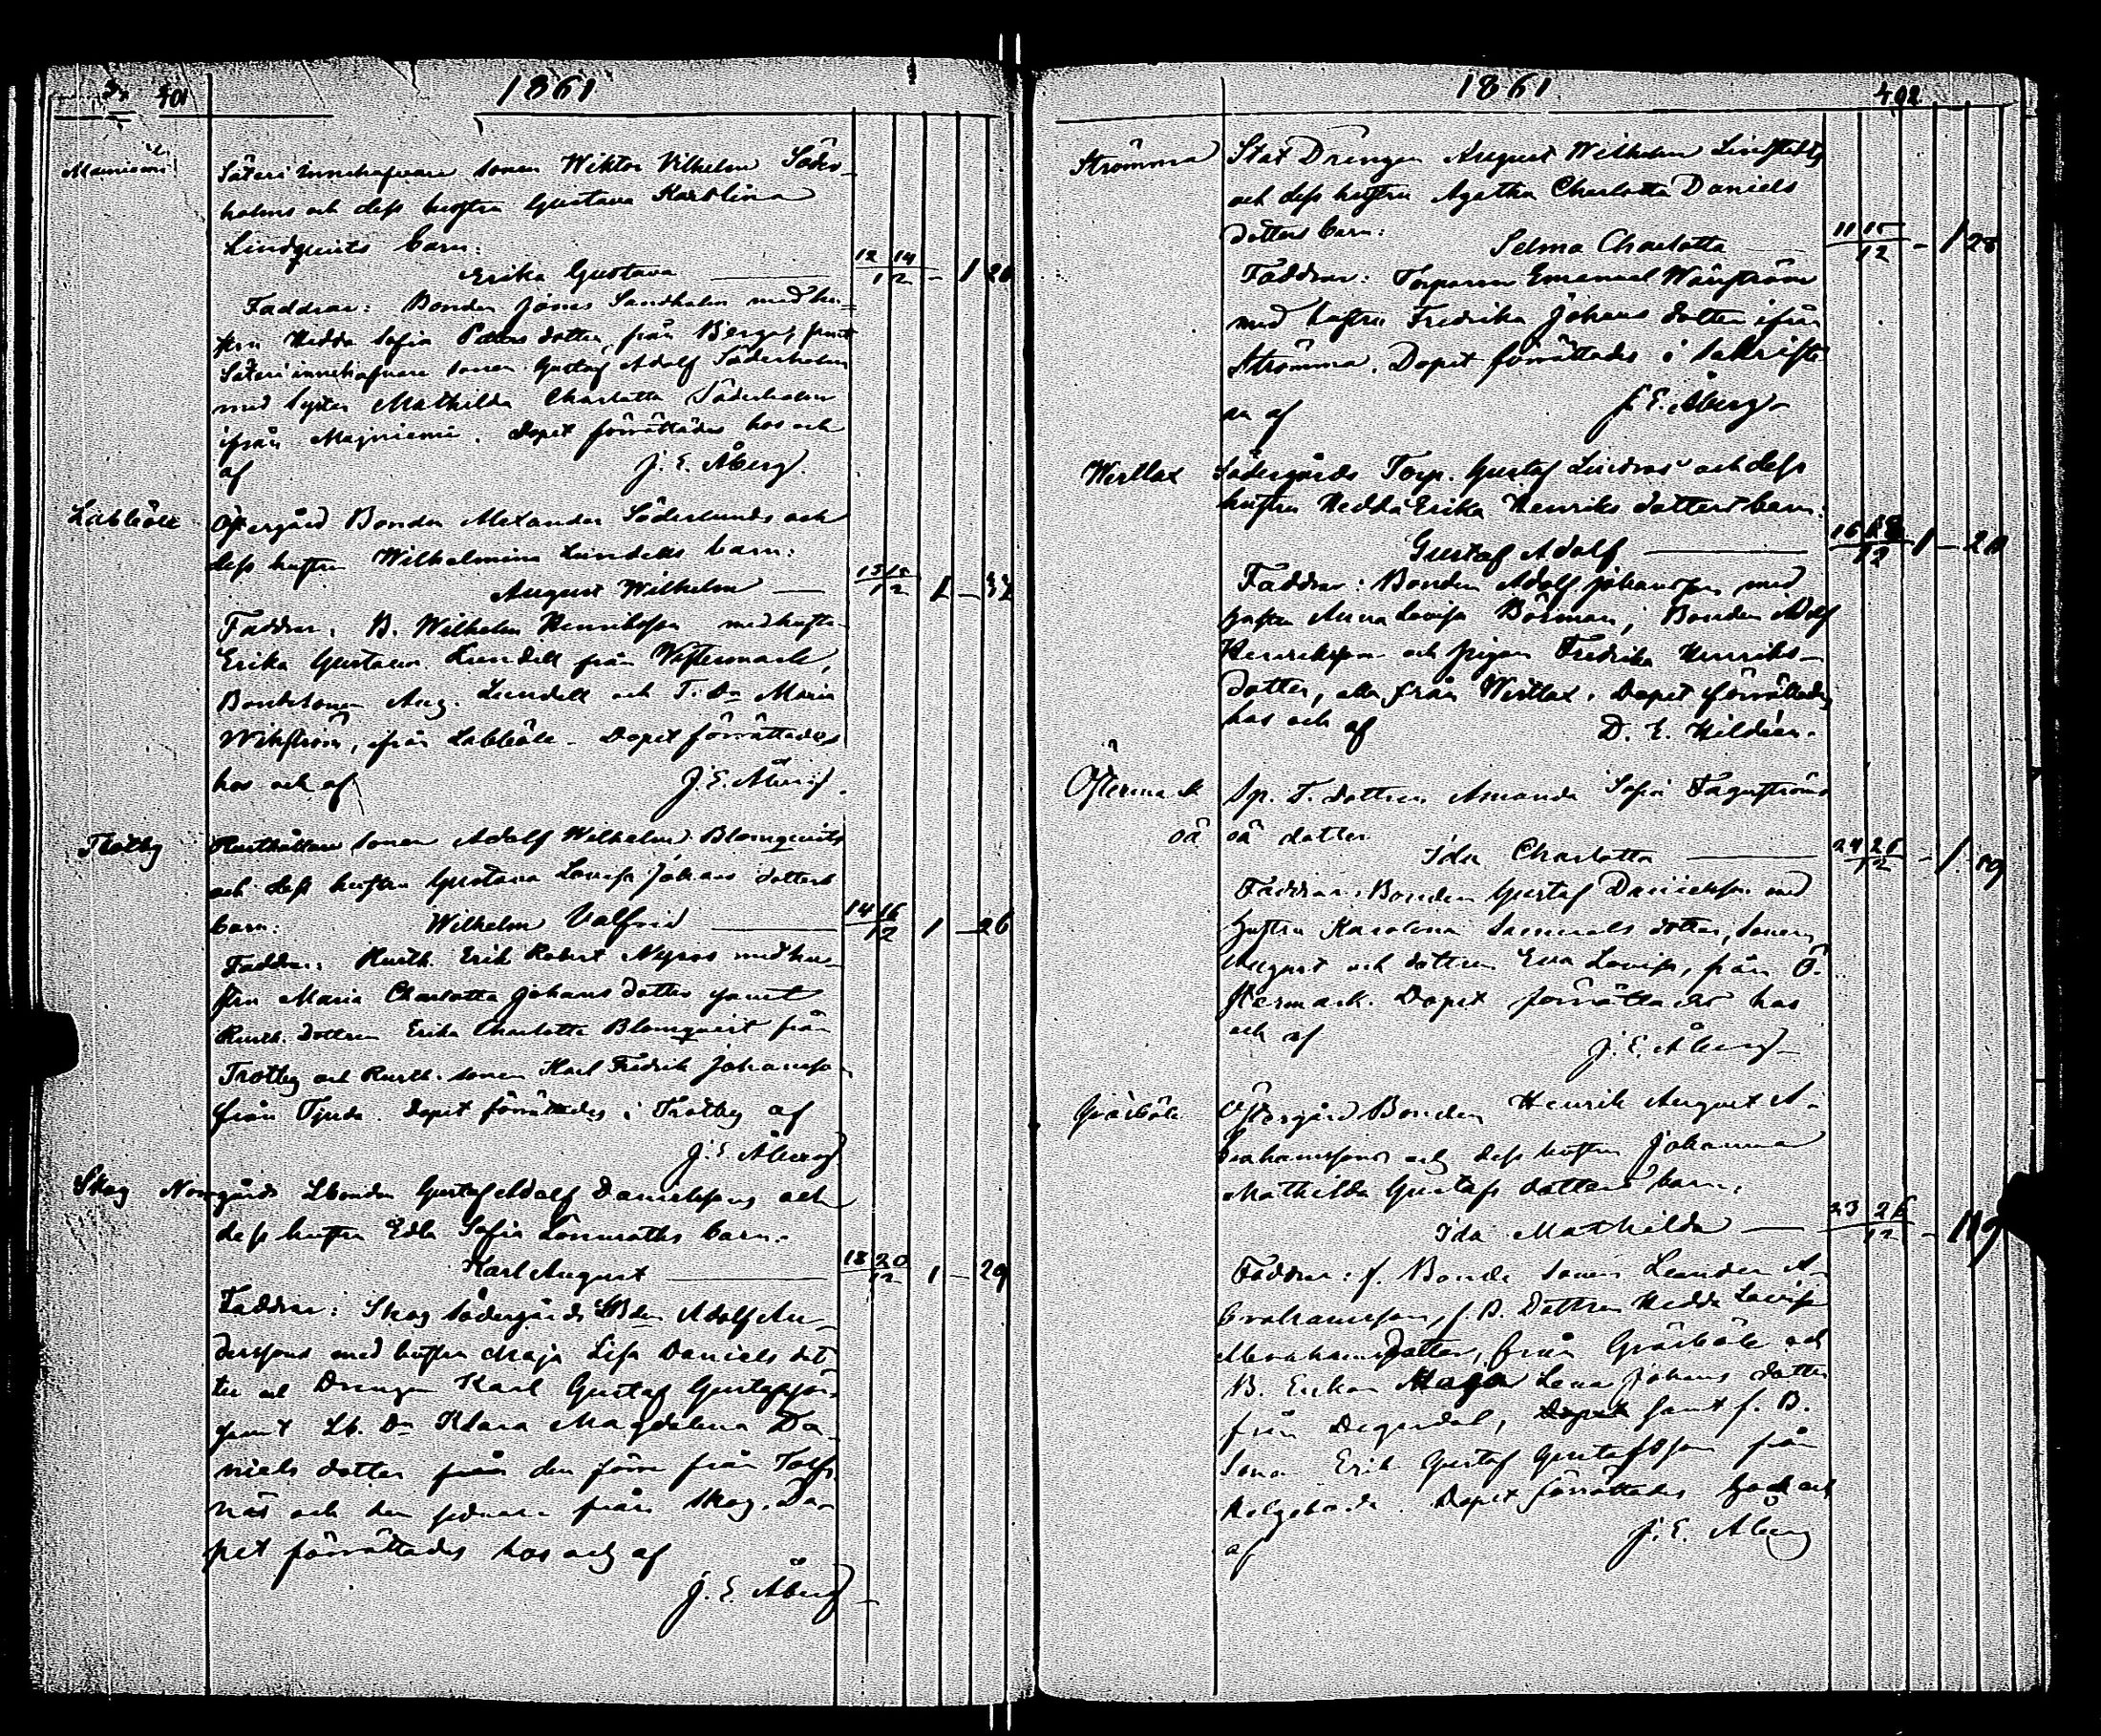 401
1861
Säteri innehafvare sonen Wiktor Vilhelm Söder-
holms och dess hustru Gustava Karolina
Lindqvists barn:
Erika Gustava 12 14/12 - 1 26
Faddrar: Bonden Jonas Sandholm med hu-
stru Hedda Sofia dotter, från Berga, samt
Säteri innehafvare sonen Gustaf Adolf Söderholm
med syster Mathilda Charlotta Söderholm
ifrån Majniemi. Dopet förrättades hos och
af J. E. Åberg.
Labböle Östergård Bonden Alexander Söderlunds och
dess hustru Wilhelmina Lundells barn:
August Wilhelm 13 15/12 1 - 32
Faddrar: B. Wilhelm Henriksson med hustru
Erika Gustava Lundell från Westermark,
Bondesonen Aug. Lundell och T. Dn Maria
Wikström, ifrån Labböle. Dopet förrättades
hos och af J. E. Åberg.
Trotby Rusthållare sonen Adolf Wilhelm Blomqvists
och dess hustru Gustava Lovisa Johans dotters
barn: Wilhelm Valfrid 14 16/12 1 - 26
Faddrar: Rusth. Erik Robert Nyroos med hu-
stru Maria Charlotta Johans dotter samt
Rusth. dottren Erika Charlotta Blomqvist från
Trotby och Rusth. sonen Karl Fredrik Johansson
från Tjuda. Dopet förrättades i Trotby af
J. E. Åberg
Skog Norrgårds Lbonden Gustaf Adolf Danielssons och
dess hustru Edla Sofia Lönnroths barn.
Karl August 18 20/12 1 - 29
Faddrar: Skog Södergårds Adolf An-
derssons med hustru Maja Lisa Daniels dot-
ter och Drengen Karl Gustaf Gustafsson
samt Lb. Dn Klara Magdalena Da-
niels dotter från den förre från Tolf-
näs och den sednare från Skog. Do-
pet förrättades hos och af
J. E. Åberg
1861
402
Strömma Stat Drengen August Wilhelm Lindstedts
och dess hustru Agatha Charlotta Daniels
dotters barn: Selma Charlotta 11 15/12 - 1 25
Faddrar: Torparen Emanuel Wänström
med hustru Fredrika Johans dotter ifrån
Strömma. Dopet förrättades i Sakristi-
an af J. E. Åberg
Wertlax Södergårds Torp. Gustaf Lindroos och dess
hustru Hedda Erika Henriks dotters barn:
Gustaf Adolf 16 /12 1 - 20
Faddrar: Bonden Adolf Johansson med
hustru Anna Lovisa Börman, Bonden Adolf
Henriksson och pigan Fredrika Henriks-
dotter, alla från Wertlax. Dopet förrättades
hos och af D. E. Hildén.
Östermark Sp. T. dottren Amanda Sofia Fagerströms
oä oä dotter
Ida Charlotta 24 25/12 - 1. 19
Faddrar: Bonden Gustaf Danielsson med
hustru Karolina Samuels dotter, sonen
August och dottren Eva Lovisa, från Ö-
stermark. Dopet förrättades hos
och af J. E. Åberg
Gräsböle Östergård Bonden Henrik August A-
brahamssons och dess hustru Johanna
Mathilda Gustafs dotters barn:
Ida Mathilda 23 26/12 - 1 19
Faddrar: f. Bonde sonen Leander A-
brahamsson, f. B. Dottren Hedda Lovisa
Abrahamsdotter, från Gräsböle och
B. Enkan Maja Lena Johans dotter
från Degerdal, Dopet samt f. B.
Sonen Erik Gustaf Gustafsson från
Helgeboda. Dopet förrättades hos och
af J. E. Åberg